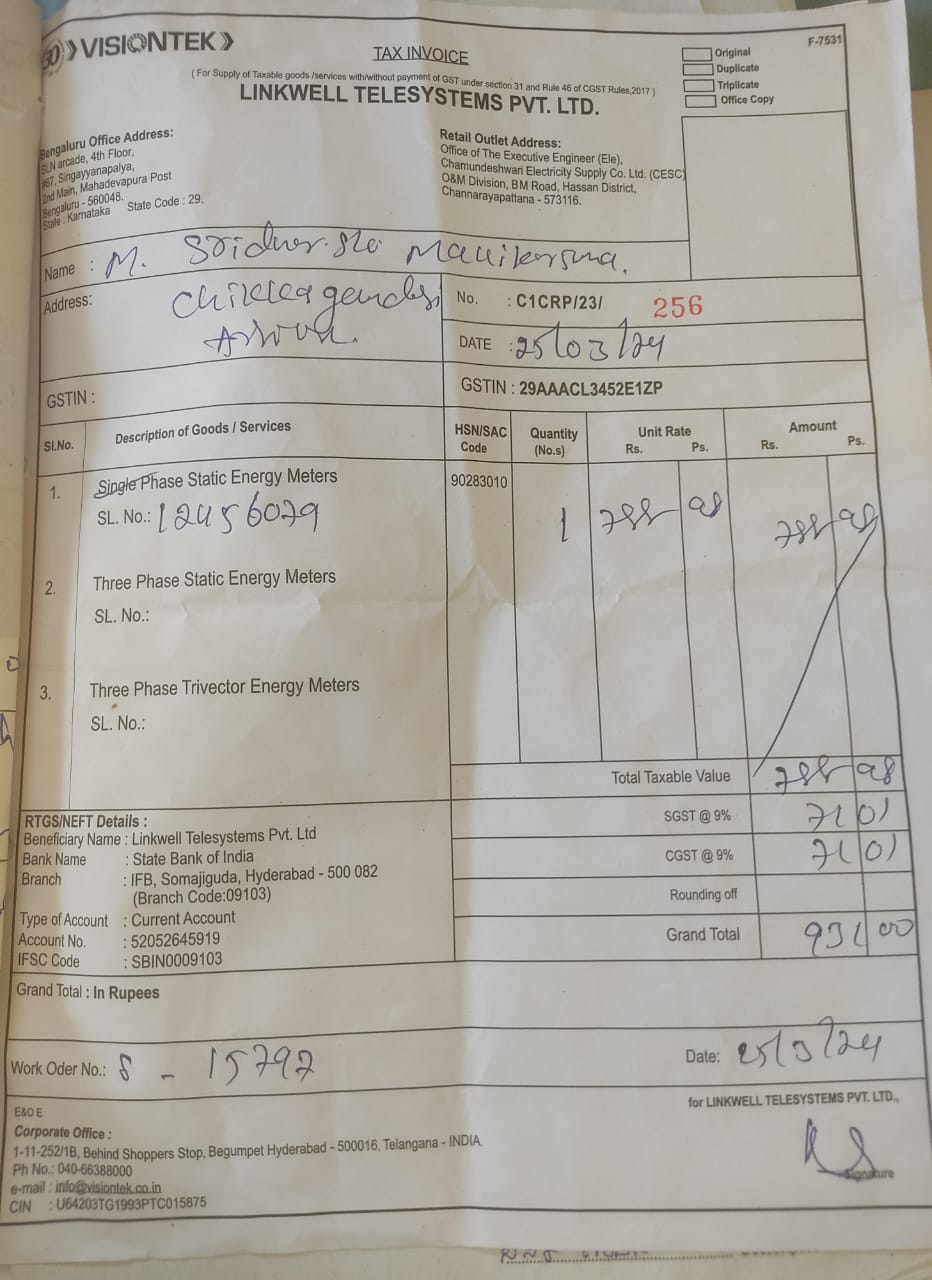 VISIONTEK
F-7531
TAX INVOICE
( For Supply of Taxable goods /services with/without payment of GST under section 31 and Rule 46 of CGST Rules,2017 )
LINKWELL TELESYSTEMS PVT. LTD.
Original
Duplicate
Triplicate
Office Copy
Bengaluru Office Address:
SLN arcade, 4th Floor,
#67, Singayyanapalya,
2nd Main, Mahadevapura Post
Bengaluru - 560048.
State : Karnataka State Code : 29.
Retail Outlet Address:
Office of The Executive Engineer (Ele),
Chamundeshwari Electricity Supply Co. Ltd. (CESC)
O&M Division, BM Road, Hassan District,
Channarayapattana - 573116.
Name : M.
Address:
No. : C1CRP/23/ 256
DATE : 25/03/24
GSTIN :
GSTIN : 29AAACL3452E1ZP
Sl.No. Description of Goods / Services HSN/SAC Code Quantity (No.s) Unit Rate Rs. Ps. Amount Rs. Ps.
1. Single Phase Static Energy Meters 90283010
SL. No.: 12456079 1 788 98 788 98
2. Three Phase Static Energy Meters
SL. No.:
3. Three Phase Trivector Energy Meters
SL. No.:
Total Taxable Value 788 98
SGST @ 9% 71 01
CGST @ 9% 71 01
Rounding off
Grand Total 931 00
RTGS/NEFT Details :
Beneficiary Name : Linkwell Telesystems Pvt. Ltd
Bank Name : State Bank of India
Branch : IFB, Somajiguda, Hyderabad - 500 082
(Branch Code:09103)
Type of Account : Current Account
Account No. : 52052645919
IFSC Code : SBIN0009103
Grand Total : In Rupees
Work Oder No.: 8 - 15797
Date: 25/3/24
for LINKWELL TELESYSTEMS PVT. LTD.,
Signature
E&O E
Corporate Office :
1-11-252/1B, Behind Shoppers Stop, Begumpet Hyderabad - 500016, Telangana - INDIA.
Ph No.: 040-66388000
e-mail : info@visiontek.co.in
CIN : U64203TG1993PTC015875